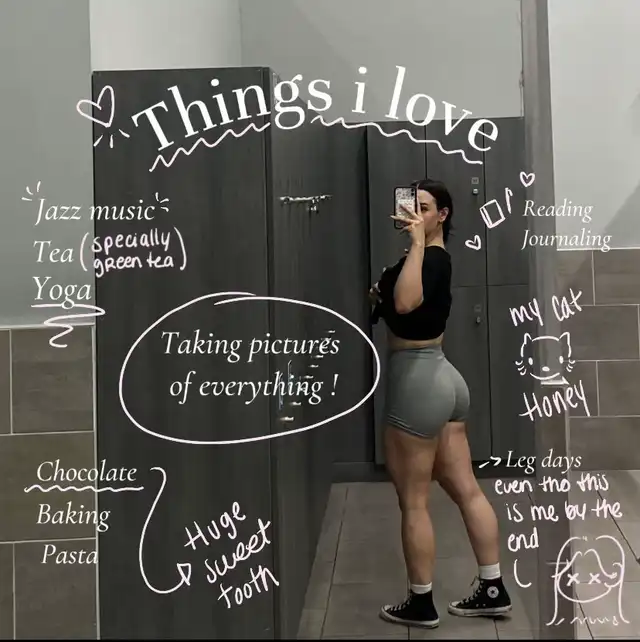 Things i love
Jazz music
Tea (specially
green tea)
Yoga
Reading
Journaling
Taking pictures
of everything !
my cat
Honey
Chocolate
Baking
Pasta
Huge
sweet
tooth
Leg days
even tho this
is me by the
end